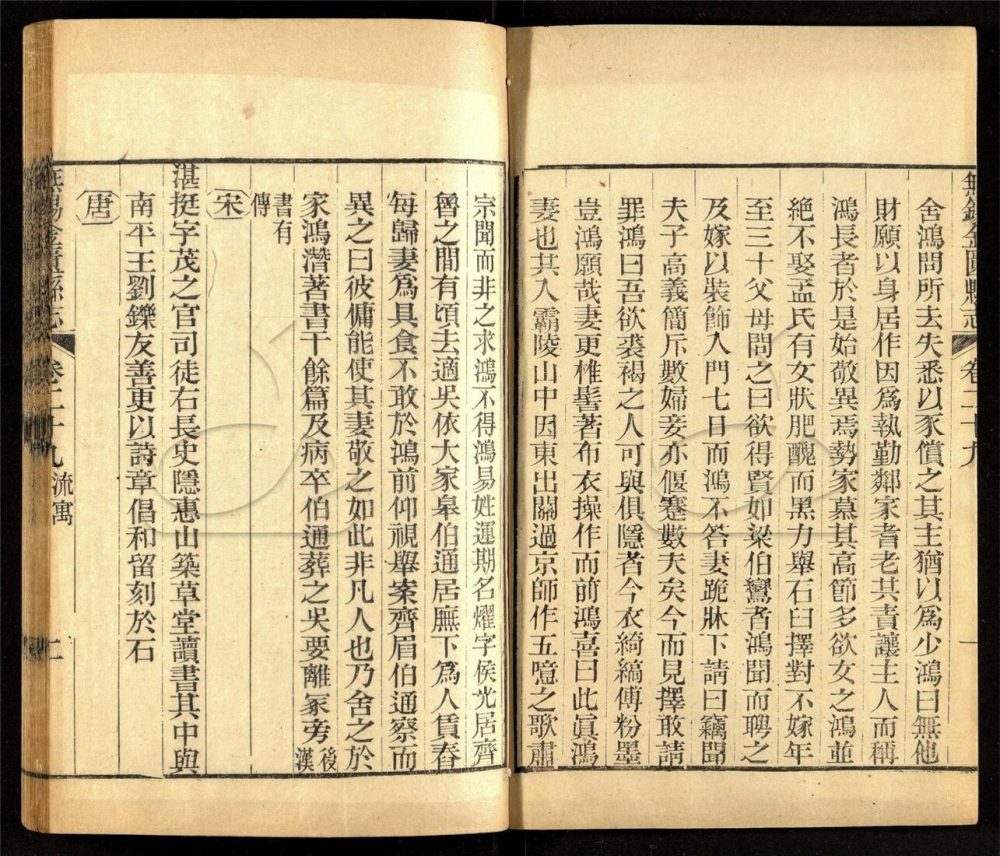 無錫金匱縣志 卷二十九 一
舍鴻問所去失悉以豕償之其主猶以為少鴻曰無他
財願以身居作因為執勤鄰家耆老其責讓主人而稱
鴻長者於是始敬異焉勢家慕其高節多欲女之鴻並
絕不娶孟氏有女狀肥醜而黑力舉石臼擇對不嫁年
至三十父母問之曰欲得賢如梁伯鸞者鴻聞而聘之
及嫁以裝飾入門七日而鴻不答妻跪牀下請曰竊聞
夫子高義簡斥數婦妾亦偃蹇數夫矣今而見擇敢請
罪鴻曰吾欲裘褐之人可與俱隱者今衣綺縞傅粉墨
豈鴻願哉妻更椎髻著布衣操作而前鴻喜曰此眞鴻
妻也其入霸陵山中因東出關過京師作五噫之歌肅
宗聞而非之求鴻不得鴻易姓運期名燿字侯光居齊
魯之閒有頃去適吳依大家皋伯通居廡下為人賃舂
每歸妻為具食不敢於鴻前仰視舉案齊眉伯通察而
異之曰彼傭能使其妻敬之如此非凡人也乃舍之於
家鴻潛著書十餘篇及病卒伯通葬之吳要離冢旁後漢
書有
傳
宋
湛挺字茂之官司徒右長史隱惠山築草堂讀書其中與
南平王劉鑠友善更以詩章倡和留刻於石
唐
無錫金匱縣志 卷二十九 流寓 二